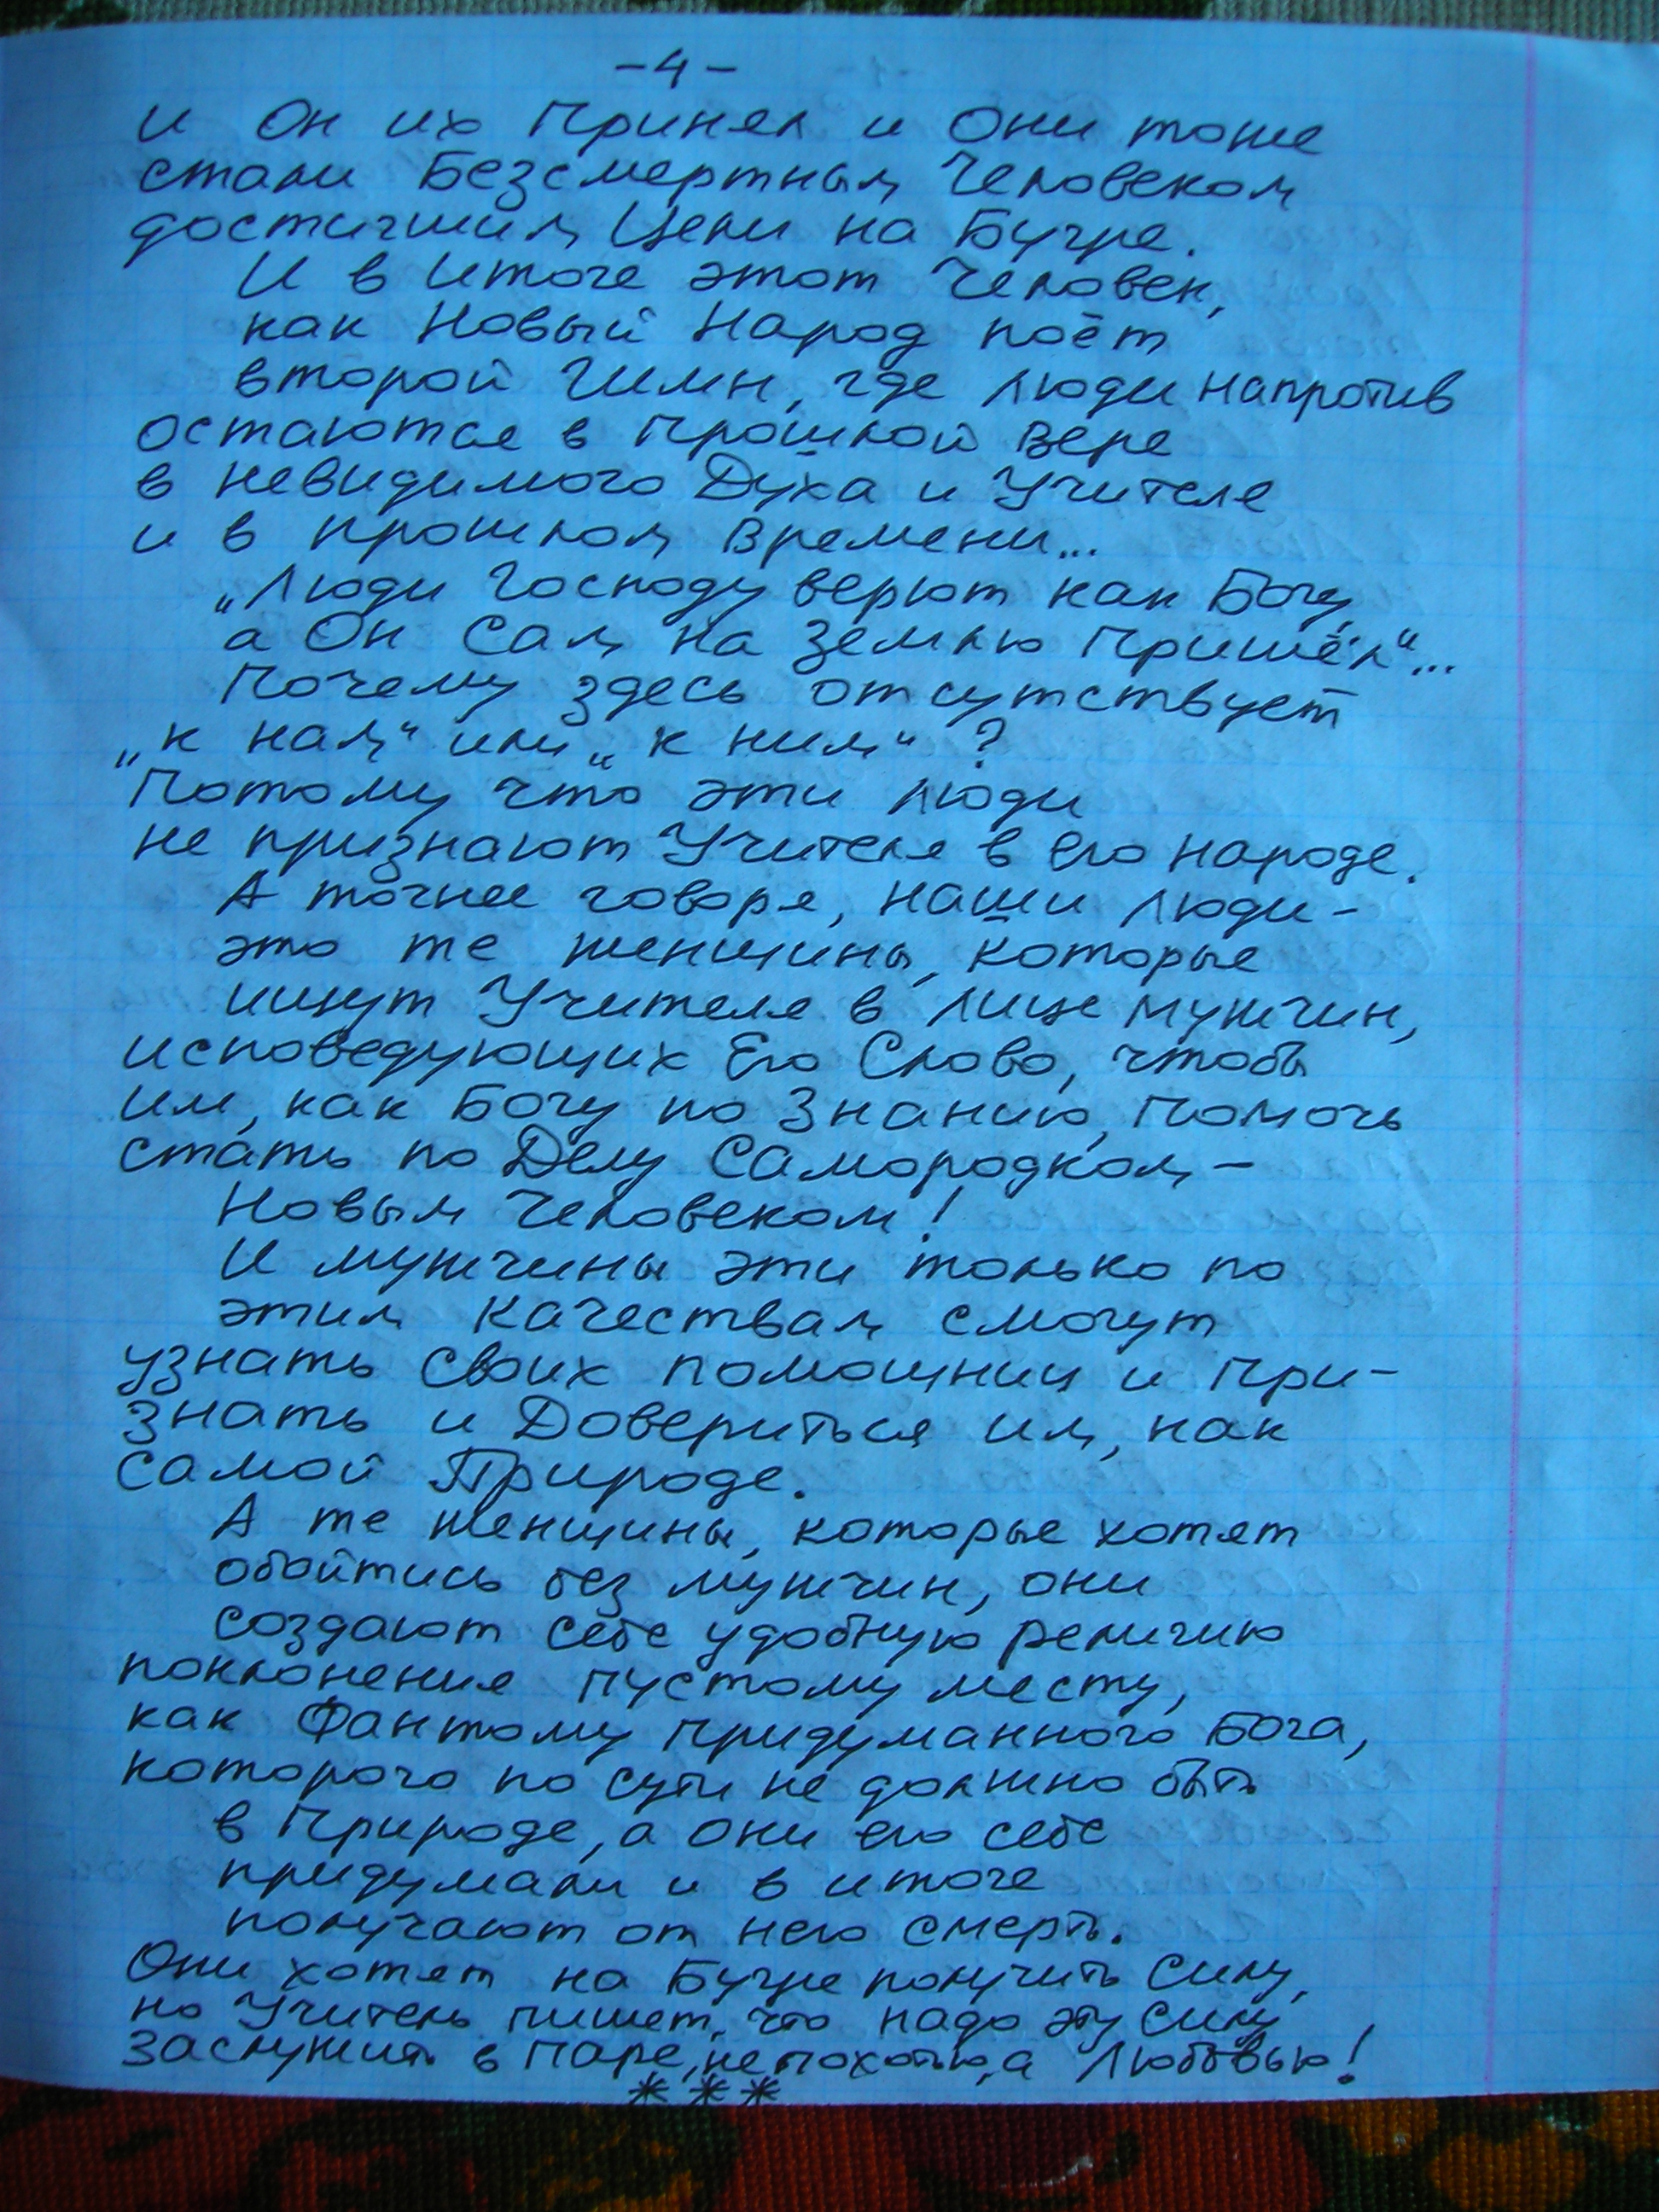 -4-
и Он их Принял и Они тоже
стали Безсмертным Человеком
достигшим Цели на Бугре.
И в Итоге этот Человек,
как Новый Народ поёт
второй Гимн, где люди напротив
остаются в Прошлой Вере
в невидимого Духа и Учителя
и в прошлом Времени...
„Люди Господу верют как Богу,
а Он Сам на Землю Пришёл“...
Почему здесь отсутствует
„к нам“ или „к ним“ ?
Потому что эти люди
не признают Учителя в Его народе.
А точнее говоря, наши люди -
это те женщины, которые
ищут Учителя в лице мужчин,
исповедующих Его Слово, чтобы
им, как Богу по Знанию, Помочь
стать по Делу Самородком -
Новым Человеком!
И мужчины эти только по
этим Качествам смогут
узнать своих помощниц и При-
знать и Довериться им, как
самой Природе.
А те женщины, которые хотят
обойтись без мужчин, они
создают себе удобную религию
поклонения пустому месту,
как Фантому Придуманного Бога,
которого по сути не должно быть
в Природе, а они его себе
придумали и в итоге
получают от него смерть.
Они хотят на Бугре получить Силу,
но Учитель пишет, что надо эту Силу
заслужить в Паре, не похотью, а Любовью!
* * *